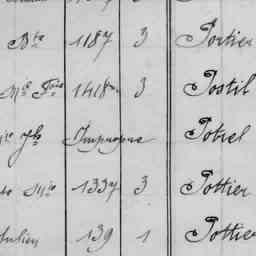 Bte 1187 3 Portier
Mie Fois 1418 3 Postil
Jh Impropre Potrel
Mie 1337 3 Pottier
Julien 139 1 Pottier